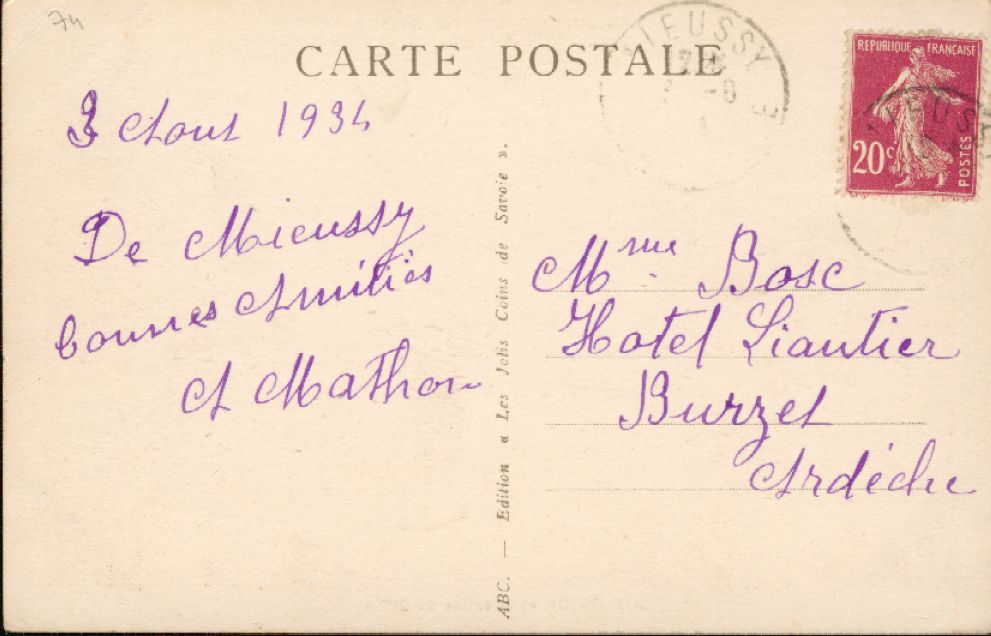 74
CARTE POSTALE
MIEUSSY
RÉPUBLIQUE FRANÇAISE
20c
POSTES
3 Aout 1934
De Mieussy
bonnes Amitiés
A Mathon
ABC. — Edition « Les Jolis Coins de Savoie ».
Mme Bosc
Hotel Liautier
Burzet
Ardéche